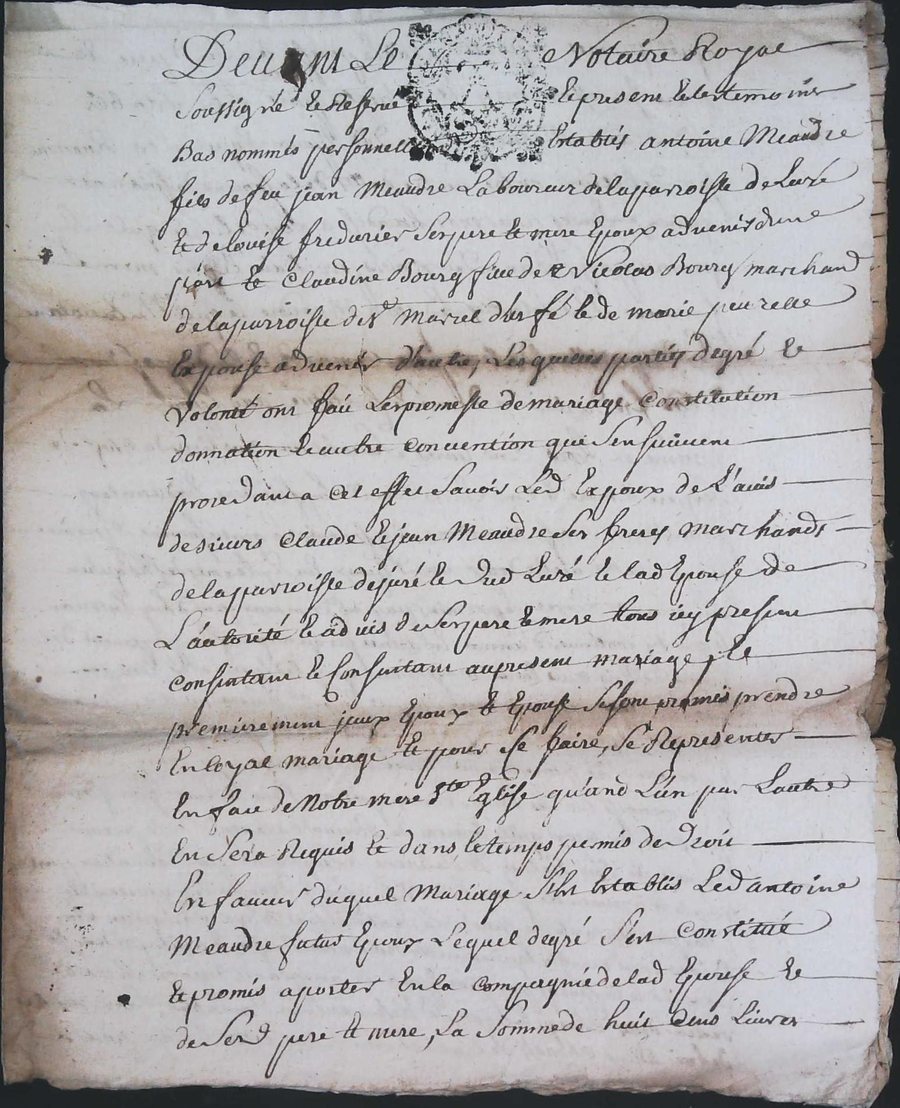 Devant Le Notaire Royal
Soussigné et Reservé et present et les temoins
Bas nommés personnell establis antoine Meandre
fils de feu jean Meandre Laboureur de la parroisse de Luré
et de Louise frédurier Ses pere et mere Epoux advenir dune
part et Claudine Bourg fille de Nicolas Bourg marchand
de la parroisse de St Marcel durfé et de marie peurelle
Exponse advenir d'autre, Lesquelles parties degré et
volonté ont fait Les promesse de mariage constitution
donnation et autre convention qui Sensuivent
procedant a cet effet Savoir Led Expoux de L'avis
de sieurs Claude et jean Meandre Ses freres marchands
de la parroisse de juré et dud Luré et lad Epouse de
L'autorité et advis de Ses pere et mere tous icy present
consintant et Consintant au present mariage, et
premierement jceux Epoux et Epouse Se sont promis prendre
En loyal mariage et pour ce faire, Se Representer
En face de Notre mere Ste Eglise quand L'un par L'autre
En Sera Requis et dans le temps permis de Droit
En faveur duquel Mariage S'est Establis Led antoine
Meandre futur Epoux Lequel degré S'est Constitué
et promis aporter En la Compagnie de lad Epouse et
de Sesd pere et mere, La Somme de huit Cens Livres